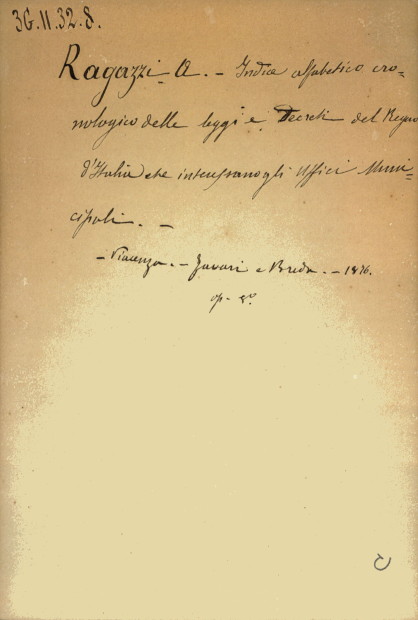 3G.11.32.8.
Ragazzi A. - Indice alfabetico cro=
nologico delle leggi e Decreti del Regno
d'Italia che interessano gli Uffici Muni=
cipali. -
- Vicenza. - Zavari e Breda. - 1876.
op. 8º.